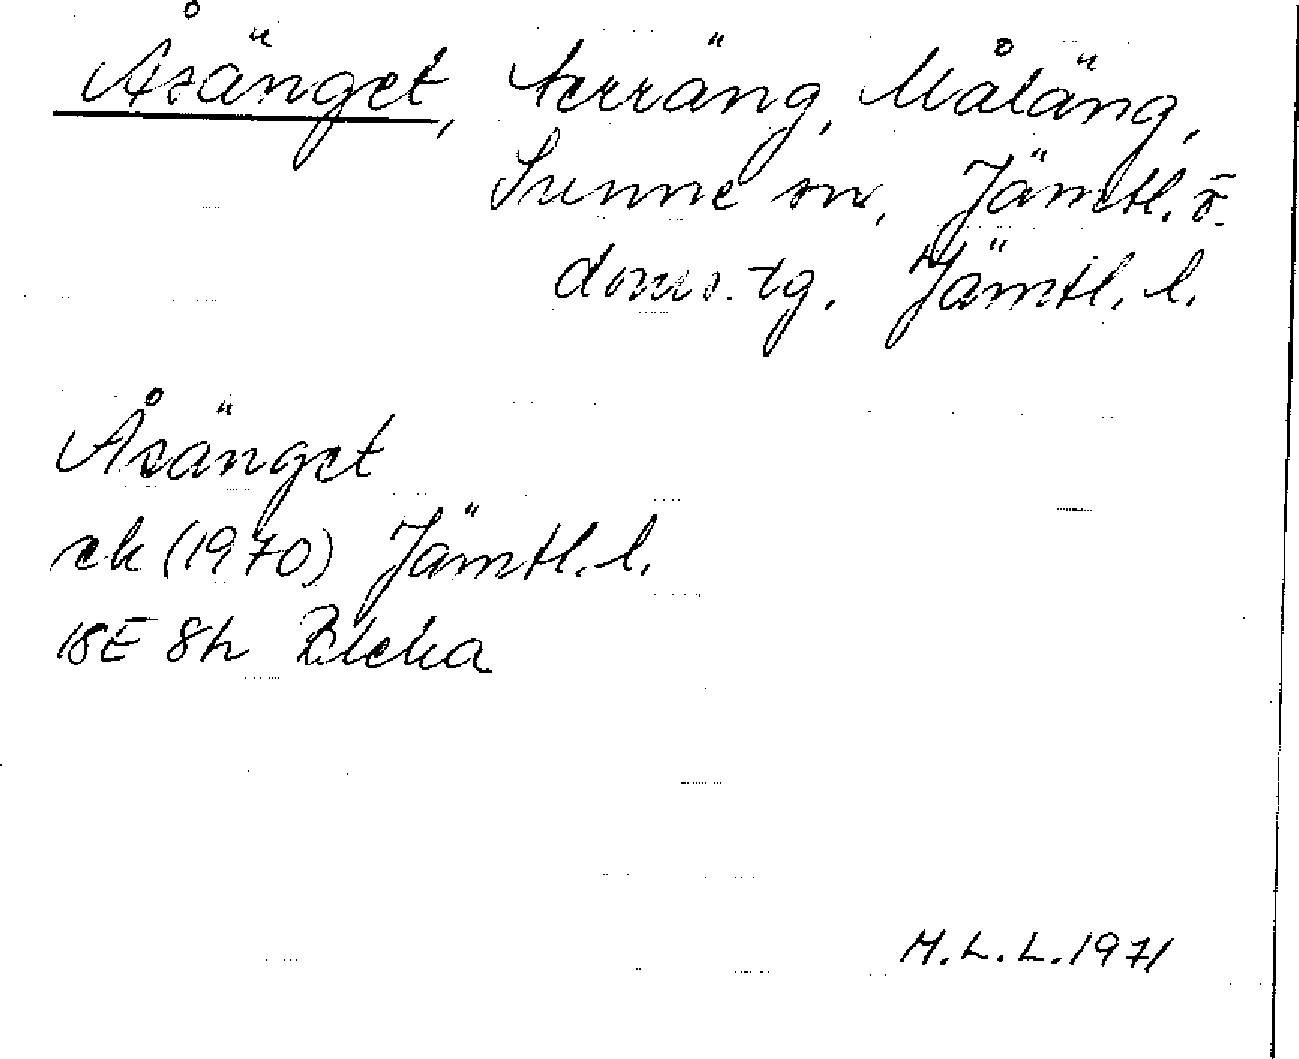 Åsänget, terräng, Måläng,
Sunne sn, Jämtl. ö.
doms. tg. Jämtl. l.
Åsänget
ek (1970) Jämtl. l.
18E 8h
M.L.L. 1971